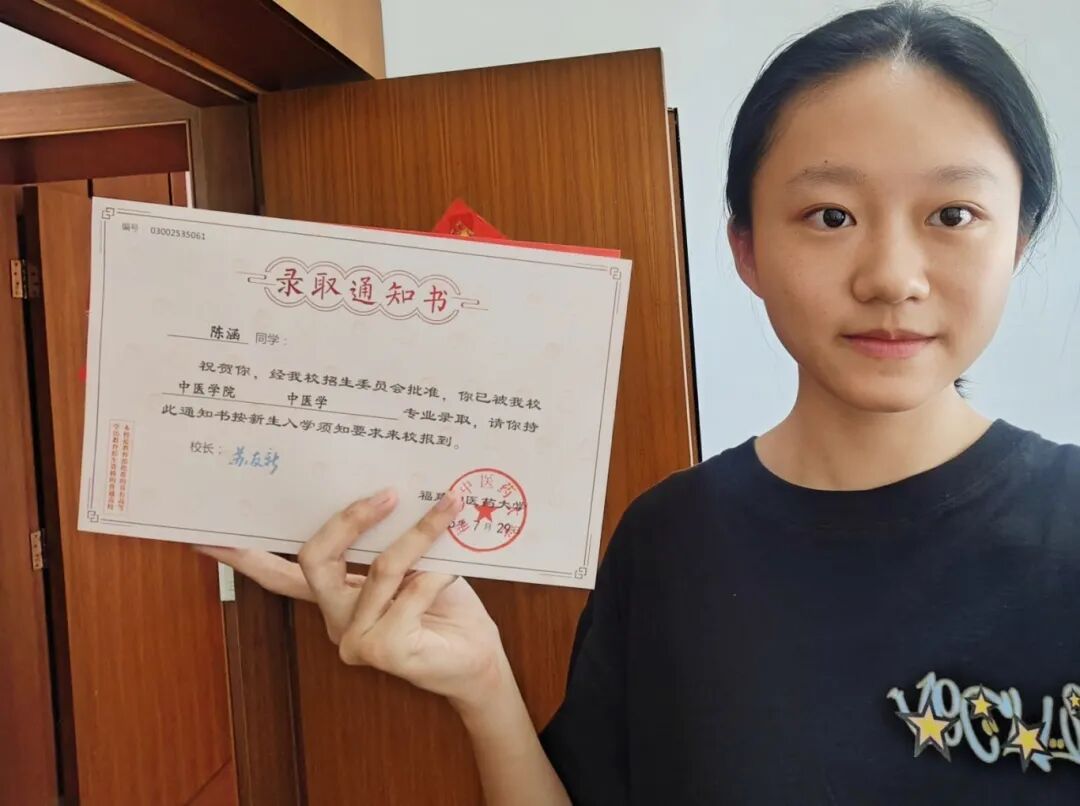 编号 03002535061
录取通知书
陈涵 同学：
祝贺你，经我校招生委员会批准，你已被我校
中医学院 中医学 专业录取，请你持
此通知书按新生入学须知要求来校报到。
校长：苏友新
医药大学
7月29日
中医药